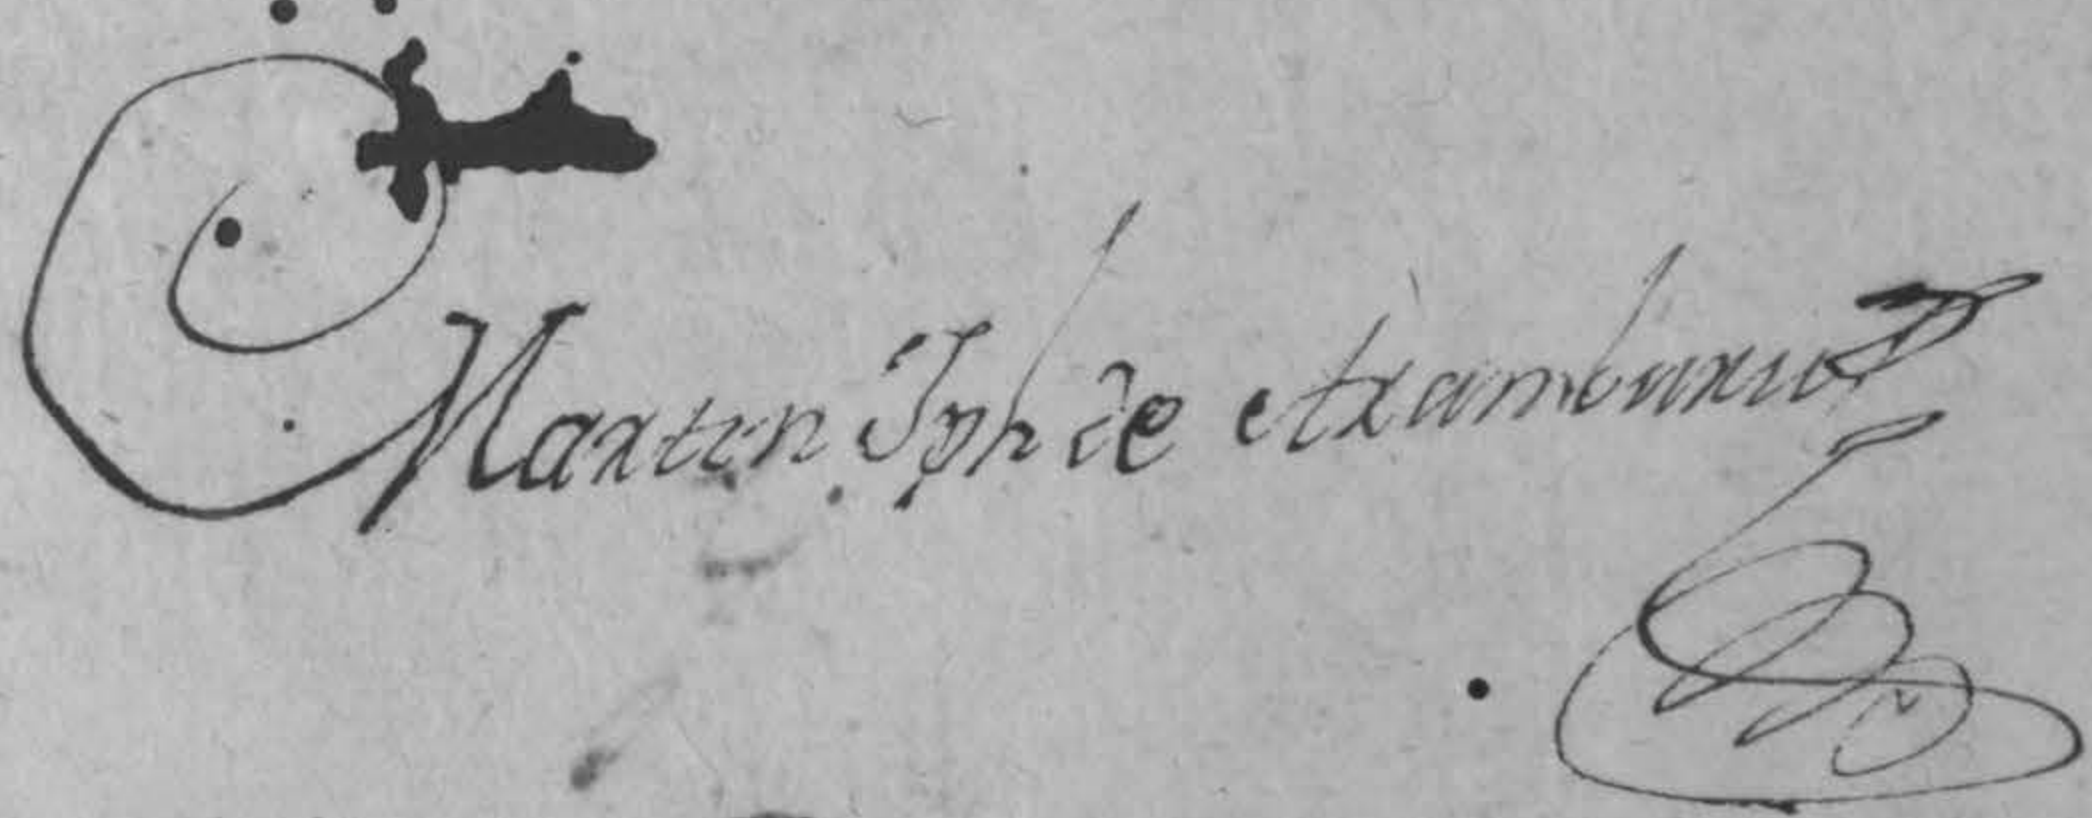 Martin Jph de etxamburu